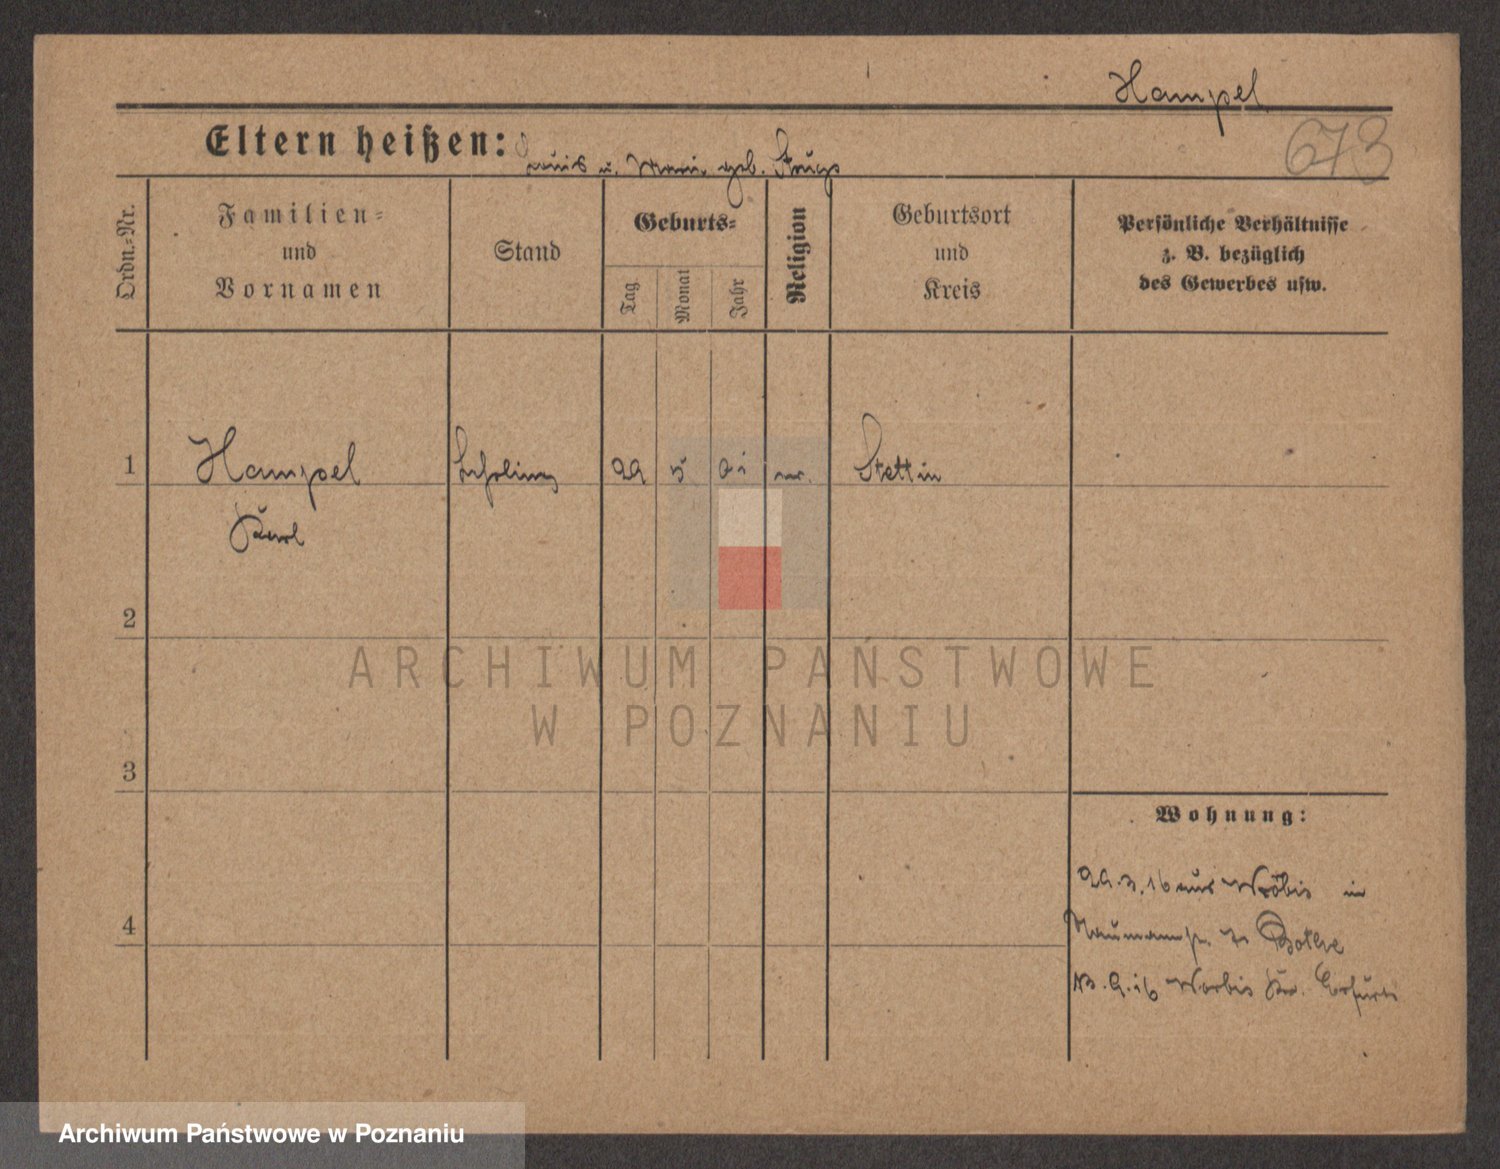 Hampel
673
Eltern heißen: Louis u. Marie geb.
Ordn.=Nr.
Familien=
und
Vornamen
Stand
Geburts=
Tag
Monat
Jahr
Religion
Geburtsort
und
Kreis
Persönliche Verhältnisse
z. B. bezüglich
des Gewerbes usw.
1 Hampel Lehrling 5 Stettin
Karl
2
3
4
Wohnung:
3.16 aus in
Bothe
Worbis Kr. Erfurt
ARCHIWUM PAŃSTWOWE
W POZNANIU
Archiwum Państwowe w Poznaniu